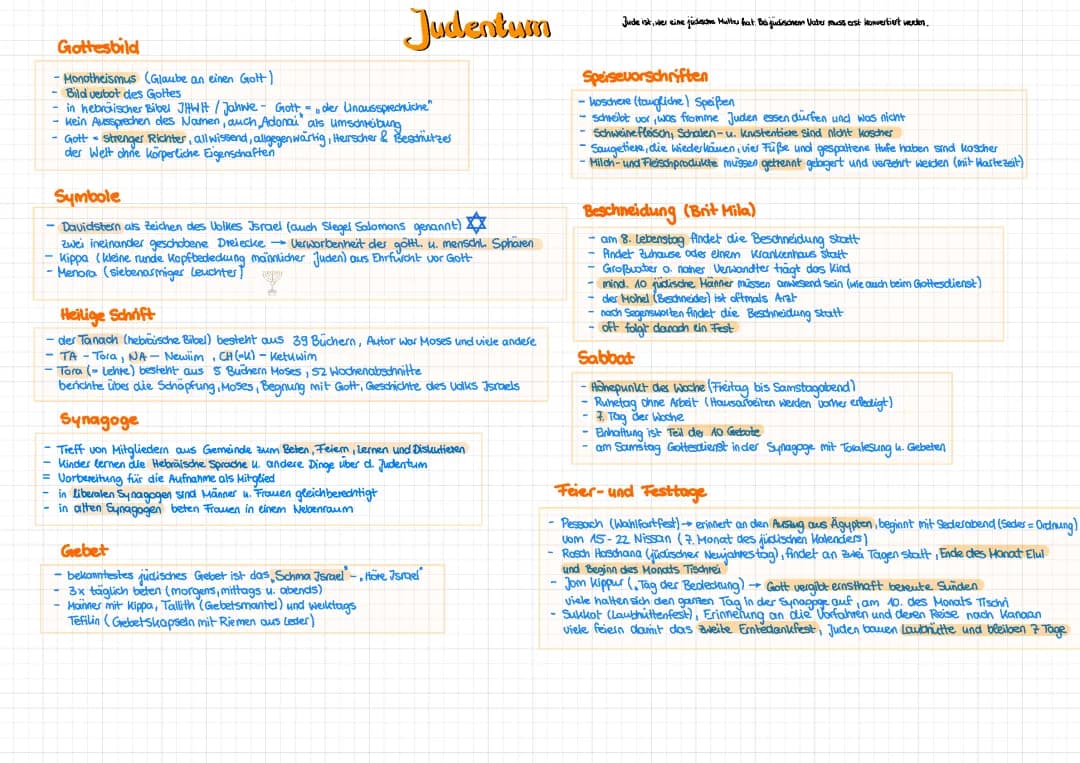 Judentum
Jude ist, wer eine jüdische Mutter hat. Bei jüdischem Vater muss erst konvertiert werden.
Gottesbild
- Monotheismus (Glaube an einen Gott)
- Bildverbot des Gottes
- in hebräischer Bibel JHWH / Jahwe - Gott = „der Unaussprechliche"
- kein Aussprechen des Namen, auch „Adonai" als Umschreibung
- Gott = strenger Richter, allwissend, allgegenwärtig, Herscher & Beschützer
der Welt ohne körperliche Eigenschaften
Symbole
- Davidstern als Zeichen des Volkes Israel (auch Siegel Salomons genannt)
zwei ineinander geschobene Dreiecke → Verworbenheit der göttl. u. menschl. Sphären
- Kippa (kleine runde Kopfbedeckung männlicher Juden) aus Ehrfurcht vor Gott
- Menora (siebenarmiger Leuchter)
Heilige Schrift
- der Tanach (hebräische Bibel) besteht aus 39 Büchern, Autor war Moses und viele andere
- TA - Tora, NA - Newiim, CH(=K) - Ketuwim
- Tora (= Lehre) besteht aus 5 Büchern Moses, 52 Wochenabschnitte
berichte über die Schöpfung, Moses, Begnung mit Gott, Geschichte des Volks Israels
Synagoge
- Treff von Mitgliedern aus Gemeinde zum Beten, Feiern, Lernen und Diskutieren
- Kinder lernen die Hebräische Sprache u. andere Dinge über d. Judentum
= Vorbereitung für die Aufnahme als Mitglied
- in liberalen Synagogen sind Männer u. Frauen gleichberechtigt
- in alten Synagogen beten Frauen in einem Nebenraum
Gebet
- bekanntestes jüdisches Gebet ist das „Schma Israel" - „Höre Israel"
- 3x täglich beten (morgens, mittags u. abends)
- Männer mit Kippa, Tallith (Gebetsmantel) und werktags
Tefilin (Gebetskapseln mit Riemen aus Leder)
Speisevorschriften
- koschere (taugliche) Speißen
- schreibt vor, was fromme Juden essen dürfen und was nicht
- Schweinefleisch, Schalen- u. Krustentiere sind nicht koscher
- Säugetiere, die wiederkäuen, vier Füße und gespaltene Hufe haben sind koscher
- Milch- und Fleischprodukte müssen getrennt gelagert und verzehrt werden (mit Wartezeit)
Beschneidung (Brit Mila)
- am 8. Lebenstag findet die Beschneidung statt
- findet Zuhause oder einem Krankenhaus statt
- Großvater o. naher Verwandter trägt das Kind
- mind. 10 jüdische Männer müssen anwesend sein (wie auch beim Gottesdienst)
- der Mohel (Beschneider) ist oftmals Arzt
- nach Segensworten findet die Beschneidung statt
- oft folgt danach ein Fest
Sabbat
- Höhepunkt des Woche (Freitag bis Samstagabend)
- Ruhetag ohne Arbeit (Hausarbeiten werden vorher erledigt)
- 7. Tag der Woche
- Einhaltung ist Teil der 10 Gebote
- am Samstag Gottesdienst in der Synagoge mit Toralesung u. Gebeten
Feier- und Festtage
- Pessach (Wahlfartfest) → erinnert an den Auszug aus Ägypten, beginnt mit Sederabend (Seder = Ordnung)
vom 15 - 22 Nissan (7. Monat des jüdischen Kalenders)
- Rosch Haschana (jüdischer Neujahrestag), findet an zwei Tagen statt, Ende des Monat Elul
und Beginn des Monats Tischrei
- Jom Kippur („Tag der Bedeckung) → Gott vergibt ernsthaft bereute Sünden
viele halten sich den ganzen Tag in der Synagoge auf, am 10. des Monats Tischri
- Sukkot (Laubhüttenfest), Erinnerung an die Vorfahren und deren Reise nach Kanaan
viele feiern damit das zweite Erntedankfest, Juden bauen Laubhütte und bleiben 7 Tage